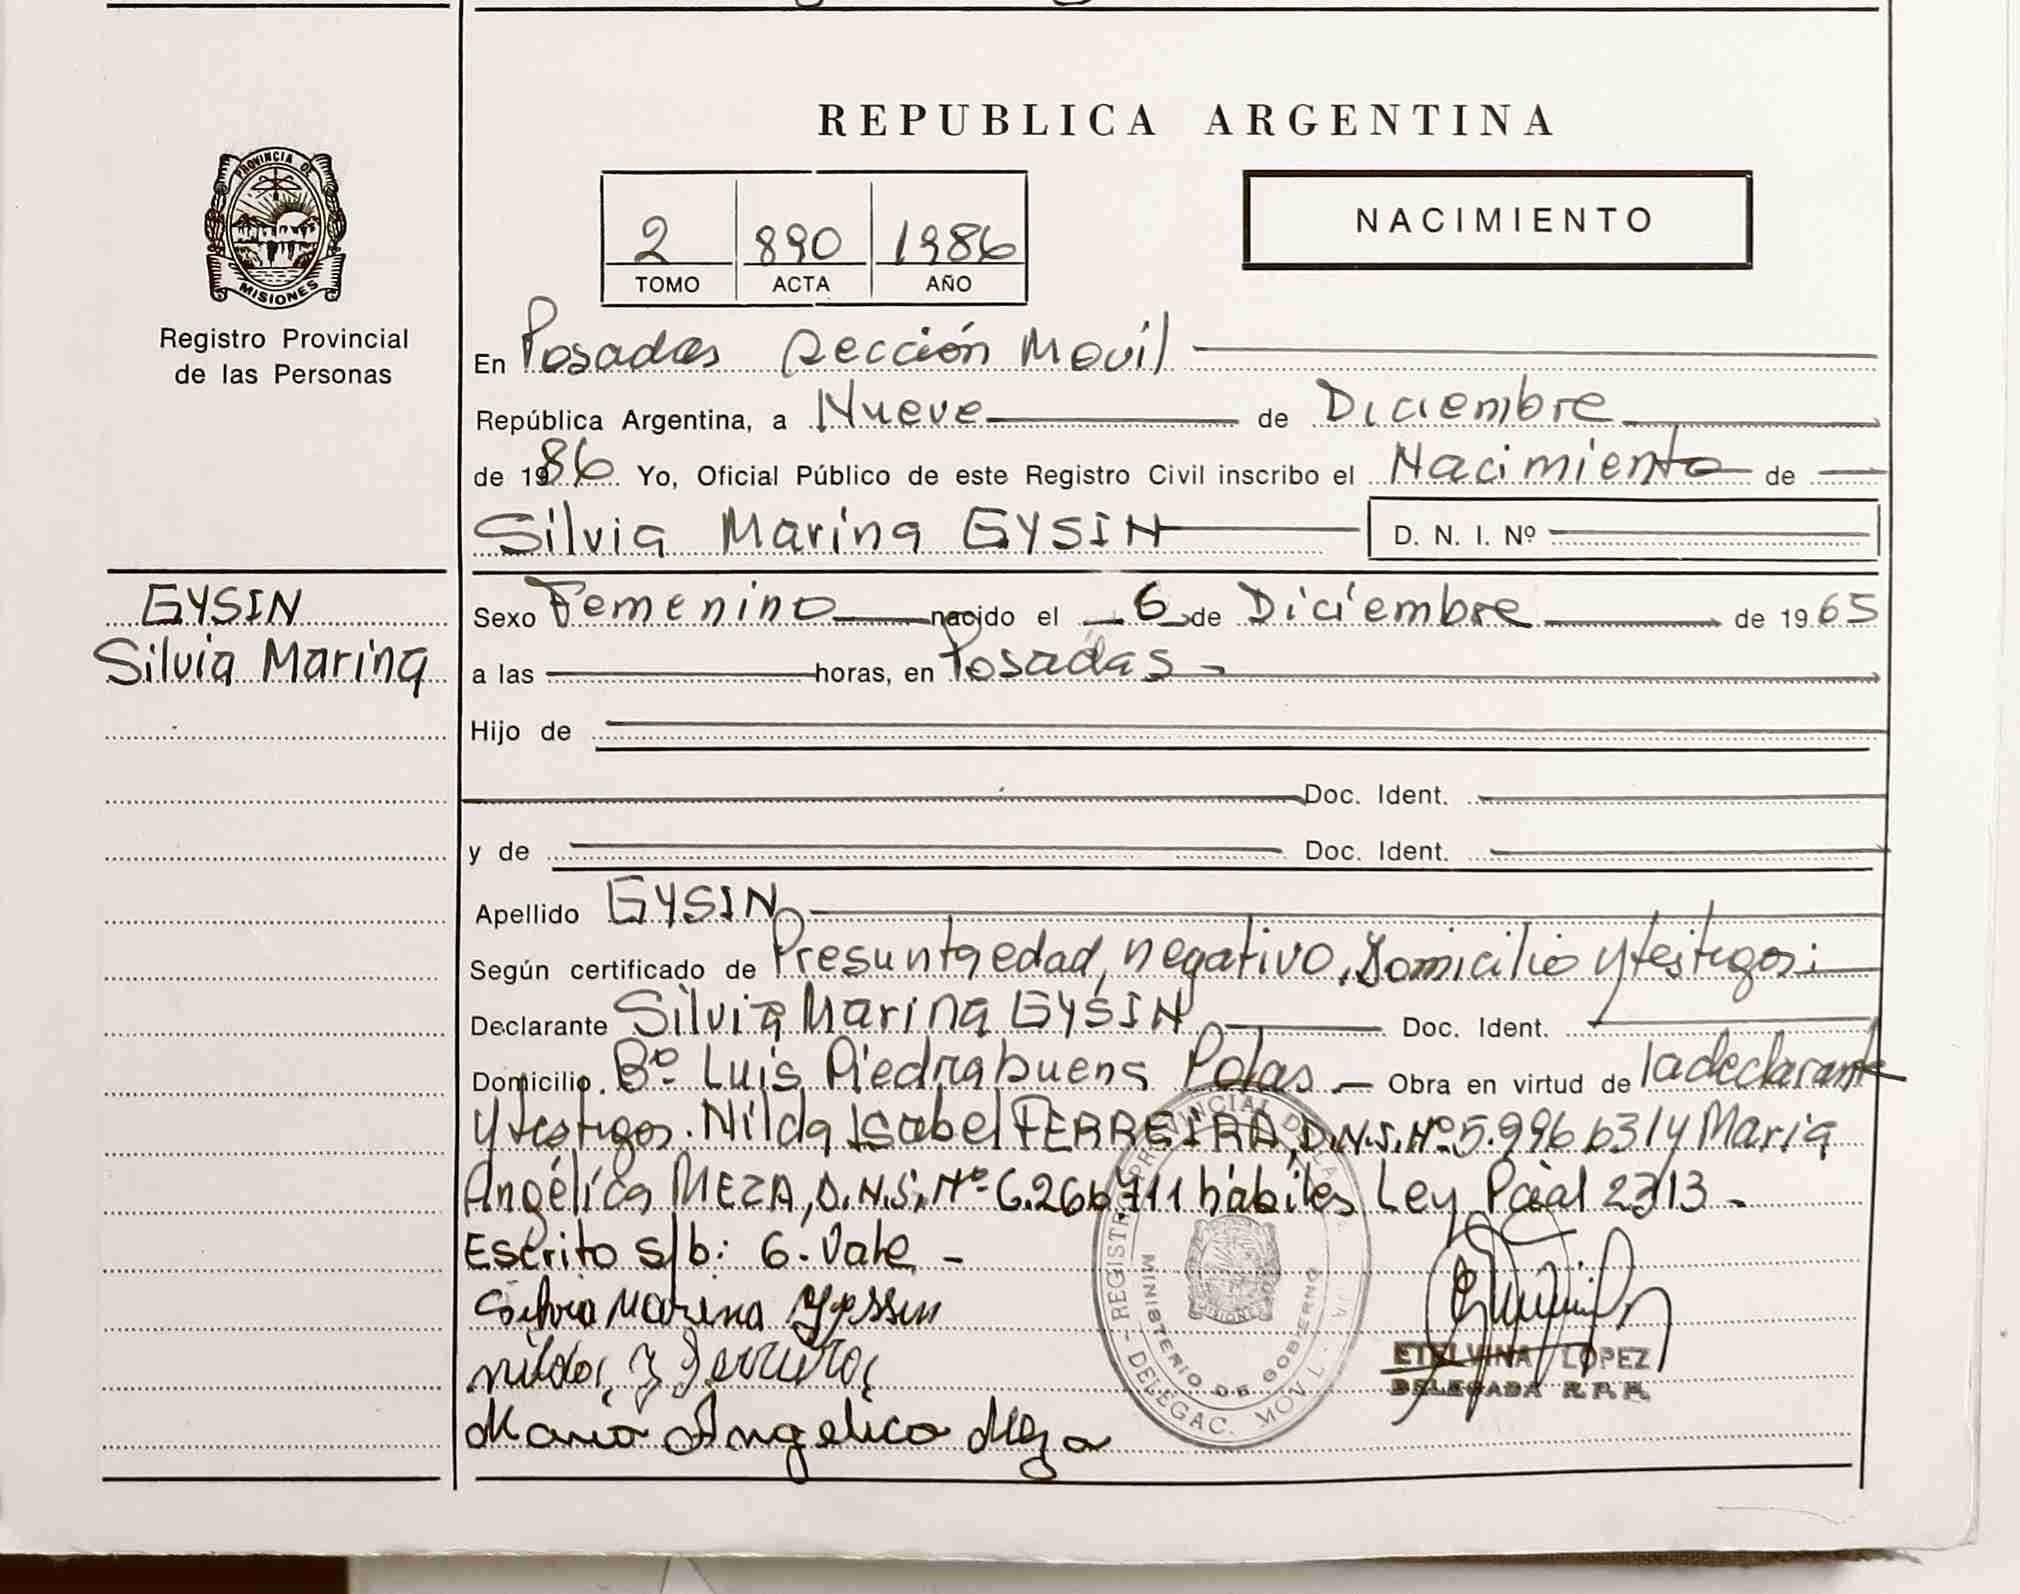 REPUBLICA ARGENTINA
PROVINCIA DE
MISIONES
Registro Provincial
de las Personas
2 890 1986
TOMO ACTA AÑO
NACIMIENTO
En Posadas Sección Movil
República Argentina, a Nueve de Diciembre
de 1986 Yo, Oficial Público de este Registro Civil inscribo el Nacimiento de
Silvia Marina GYSIN D. N. I. Nº
GYSIN
Silvia Marina
Sexo Femenino nacido el 6 de Diciembre de 1965
a las horas, en Posadas
Hijo de
Doc. Ident.
y de Doc. Ident.
Apellido GYSIN
Según certificado de Presunta edad, negativo, Domicilio y testigos:
Declarante Silvia Marina GYSIN Doc. Ident.
Domicilio Bº Luis Piedrabuena Pdas - Obra en virtud de la declarante
y testigos. Nilda Isabel FERREIRA, D.N.I. Nº 5.996 631 y Maria
Angélica MEZA, D.N.I. Nº 6.266 711 hábiles Ley Pcial 2313 -
Escrito s/b: 6. Vale -
Silvia Marina Gyssin
Nilda I Ferreira
Maria Angelica Meza
REGISTRO PROVINCIAL DE LAS
DELEGAC. MOVIL
MINISTERIO DE GOBIERNO
MISIONES
ETELVINA LOPEZ
DELEGADA R.P.P.